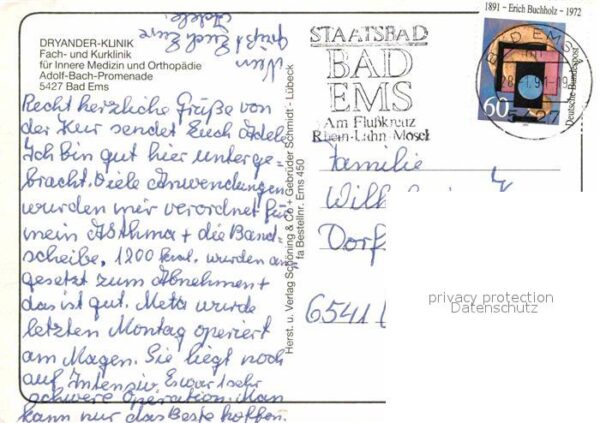 DRYANDER-KLINIK
Fach- und Kurklinik
für Innere Medizin und Orthopädie
Adolf-Bach-Promenade
5427 Bad Ems
Recht herzliche Grüße von
der Kur sendet Euch Adele
Ich bin gut hier unterge-
bracht. Viele Anwendungen
wurden mir verordnet für
mein Asthma + die Band-
scheibe, 1200 kcal. wurden an
gesetzt zum Abnehmen +
das ist gut. Meta wurde
letzten Montag operiert
am Magen. Sie liegt noch
auf Intensiv. Es war 1 sehr
schwere Operation. Man
kann nur das Beste hoffen.
Nun
grüßt Euch Eure
Adele.
Herst. u. Verlag Schöning & Co + Gebrüder Schmidt - Lübeck
fa Bestellnr. Ems 450
STAATSBAD
BAD
EMS
Am Flußkreuz
Rhein-Lahn-Mosel
1891 - Erich Buchholz - 1972
60
Deutsche Bundespost
BAD EMS
Familie
Dorf
6541
privacy protection
Datenschutz